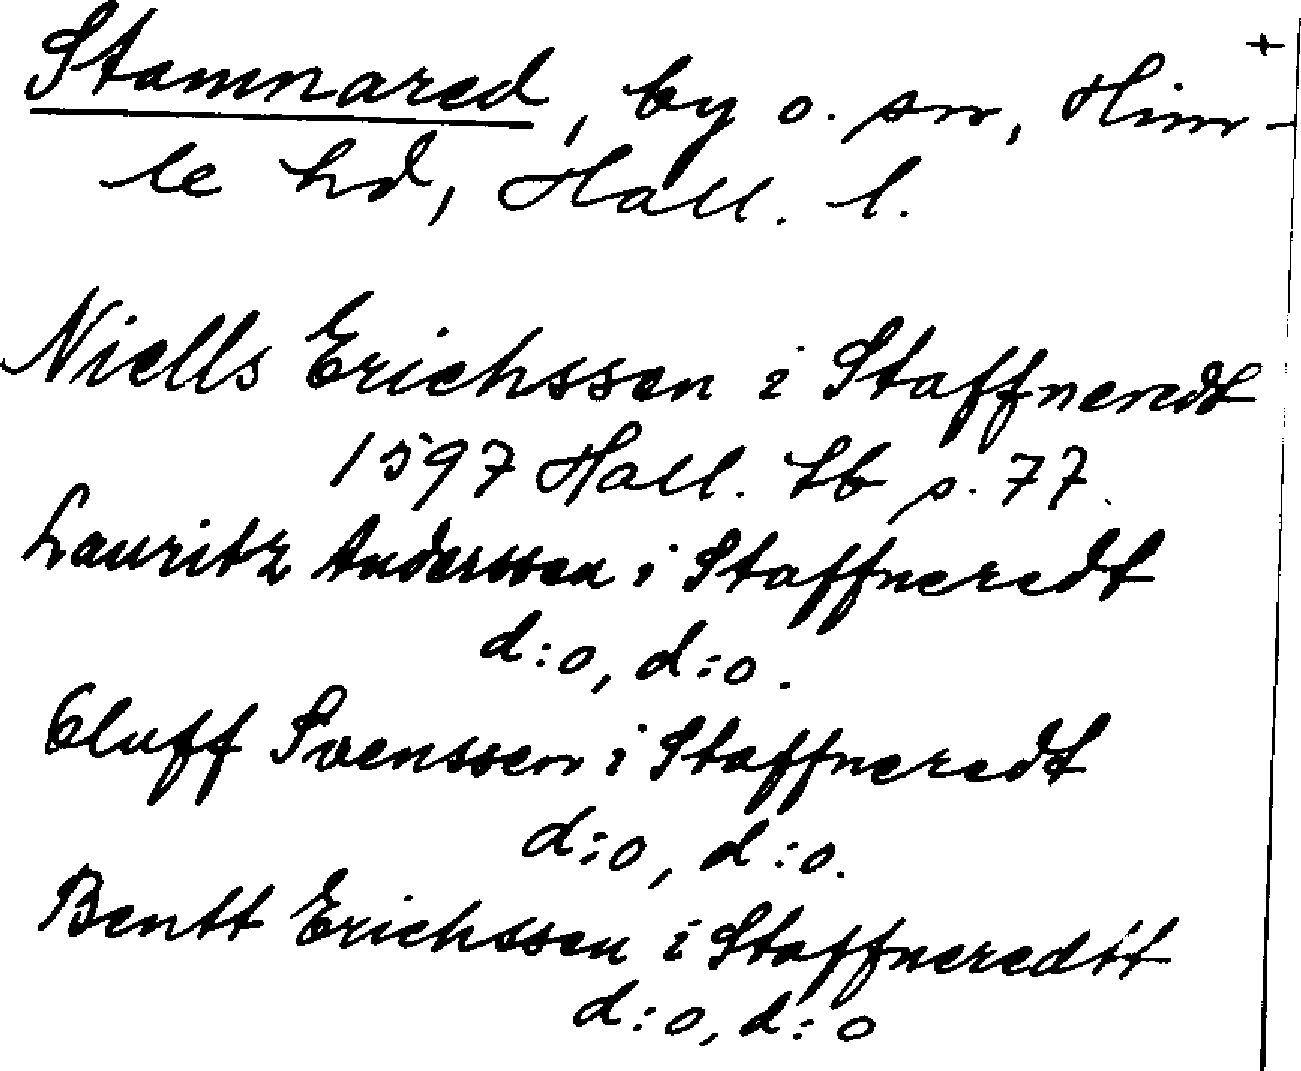 Stamnared, by o. sn, Him-
le hd, Hall. l.
Niells Erichssen i Staffneredt
1597 Hall. Lb s. 77.
Lauritz Anderssen i Staffneredt
d:o, d:o.
Oluff Svenssen i Staffneredt
d:o, d:o.
Bentt Erichssen i Staffneredtt
d:o, d:o